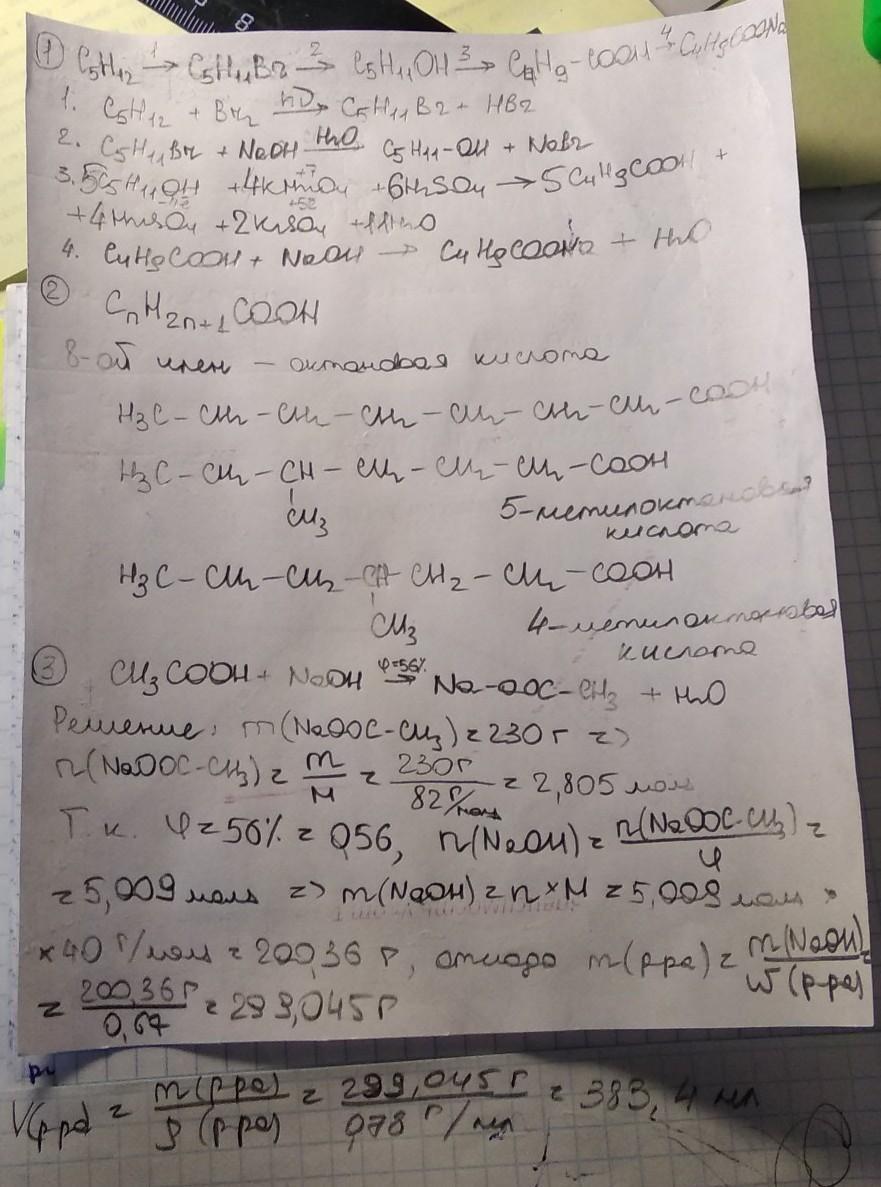 8
① C5H12 1→ C5H11Br 2→ C5H11OH 3→ C4H9-COOH 4→ C4H9COONa
1. C5H12 + Br2 hν→ C5H11Br + HBr
2. C5H11Br + NaOH H2O→ C5H11-OH + NaBr
3. 5C5H11OH + 4KMnO4 + 6H2SO4 → 5C4H9COOH +
+ 4MnSO4 + 2K2SO4 + 11H2O
4. C4H9COOH + NaOH → C4H9COONa + H2O
② CnH2n+1COOH
8-ой член – октановая кислота
H3C – CH2 – CH2 – CH2 – CH2 – CH2 – CH2 – COOH
H3C – CH2 – CH – CH2 – CH2 – CH2 – COOH
CH3
5-метилоктановая
кислота
H3C – CH2 – CH2 – CH – CH2 – CH2 – COOH
CH3
4-метилоктановая
кислота
③ CH3COOH + NaOH φ=56%→ Na-OOC-CH3 + H2O
Решение: m(NaOOC-CH3) = 230 г =>
n(NaOOC-CH3) = m/M = 230 г / 82 г/моль = 2,805 моль
Т.к. φ = 56% = 0,56, n(NaOH) = n(NaOOC-CH3)/φ =
= 5,009 моль => m(NaOH) = n × M = 5,009 моль ×
× 40 г/моль = 200,36 г, отсюда m(р-ра) = m(NaOH)/w(р-ра) =
= 200,36 г / 0,67 = 299,045 г
V(р-ра) = m(р-ра)/ρ(р-ра) = 299,045 г / 0,78 г/мл = 383,4 мл